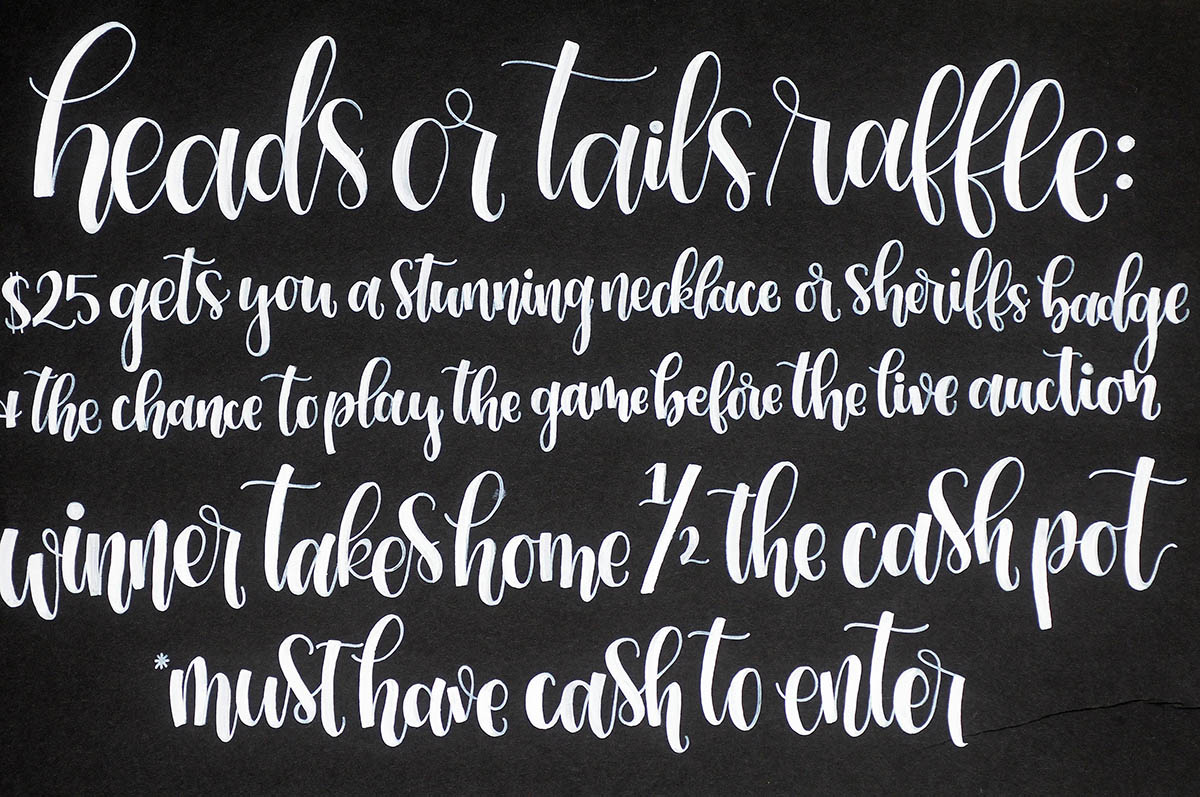 heads or tails raffle:
$25 gets you a stunning necklace or sheriffs badge
+ the chance to play the game before the live auction
winner takes home 1/2 the cash pot
*must have cash to enter